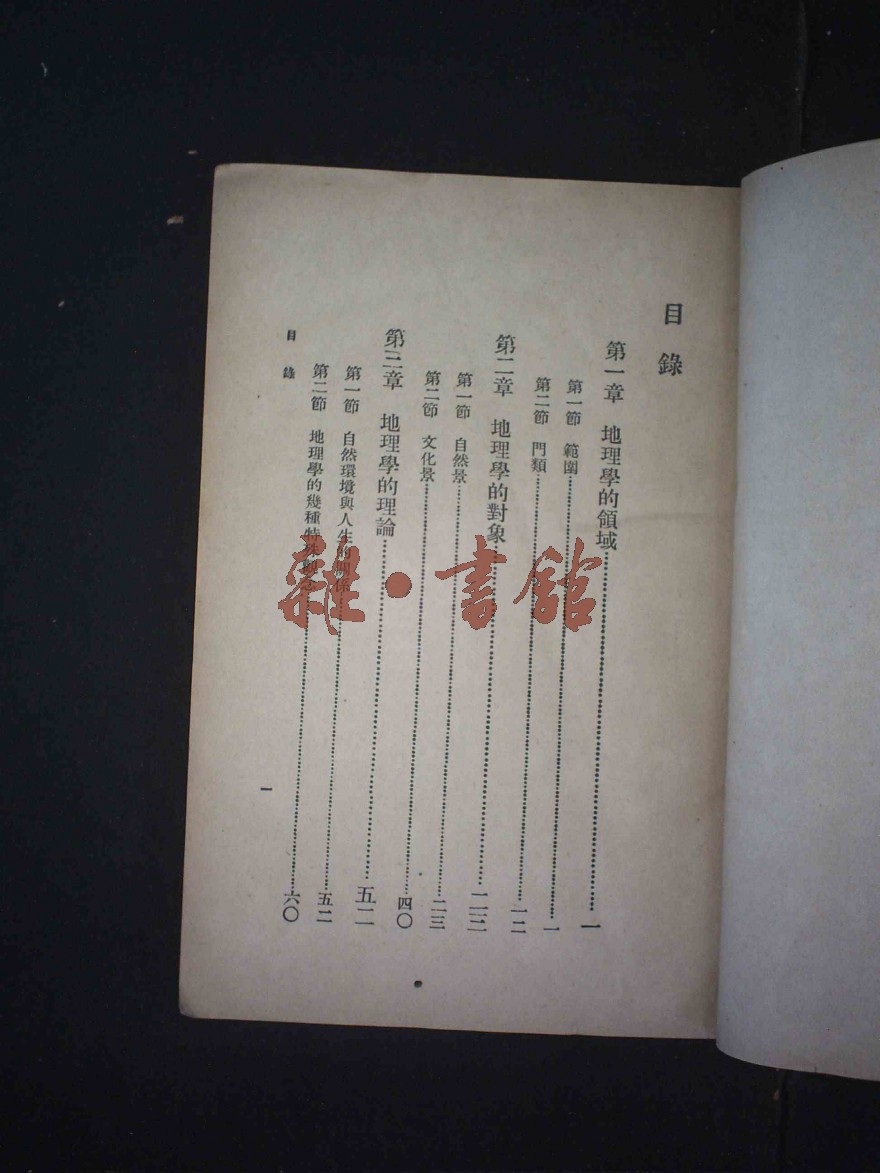 目錄
第一章 地理學的領域………一
第一節 範圍………一
第二節 門類………一二
第二章 地理學的對象………二三
第一節 自然景………二三
第二節 文化景………四〇
第三章 地理學的理論………五二
第一節 自然環境與人生的關係………五二
第二節 地理學的幾種特殊觀念………六〇
目錄
一
雜·書館